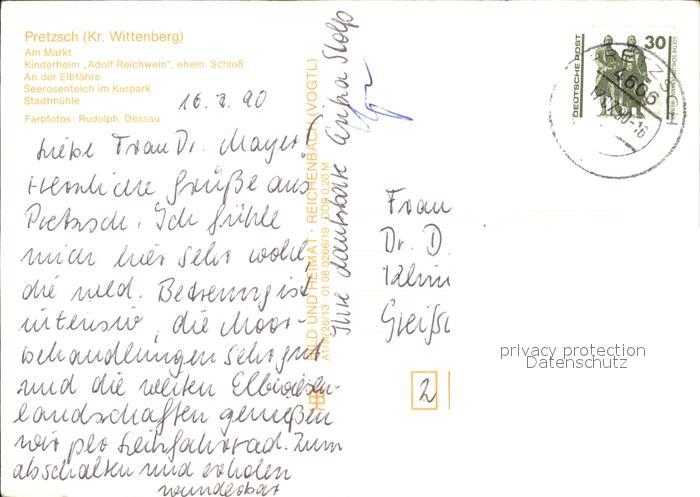 Pretzsch (Kr. Wittenberg)
Am Markt
Kinderheim „Adolf Reichwein", ehem. Schloß
An der Elbfähre
Seerosenteich im Kurpark
Stadtmühle
Farbfotos: Rudolph, Dessau
16.7.90
Liebe Frau Dr. Mayer!
Herzliche Grüße aus
Pretzsch. Ich fühle
mich hier sehr wohl,
die med. Betreuung ist
intensiv, die Moor-
behandlungen sehr gut
und die weiten Elbwiesen-
landschaften genießen
wir per Leihfahrrad. Zum
abschalten und erholen
wunderbar
Ihre dankbare
BILD UND HEIMAT · REICHENBACH (VOGTL)
A1/III/26/13 01 08 0266/19 DDR 0,20 M
DEUTSCHE POST
30
4606
-16
Frau
Dr. D
Klini
Greifs
2
privacy protection
Datenschutz